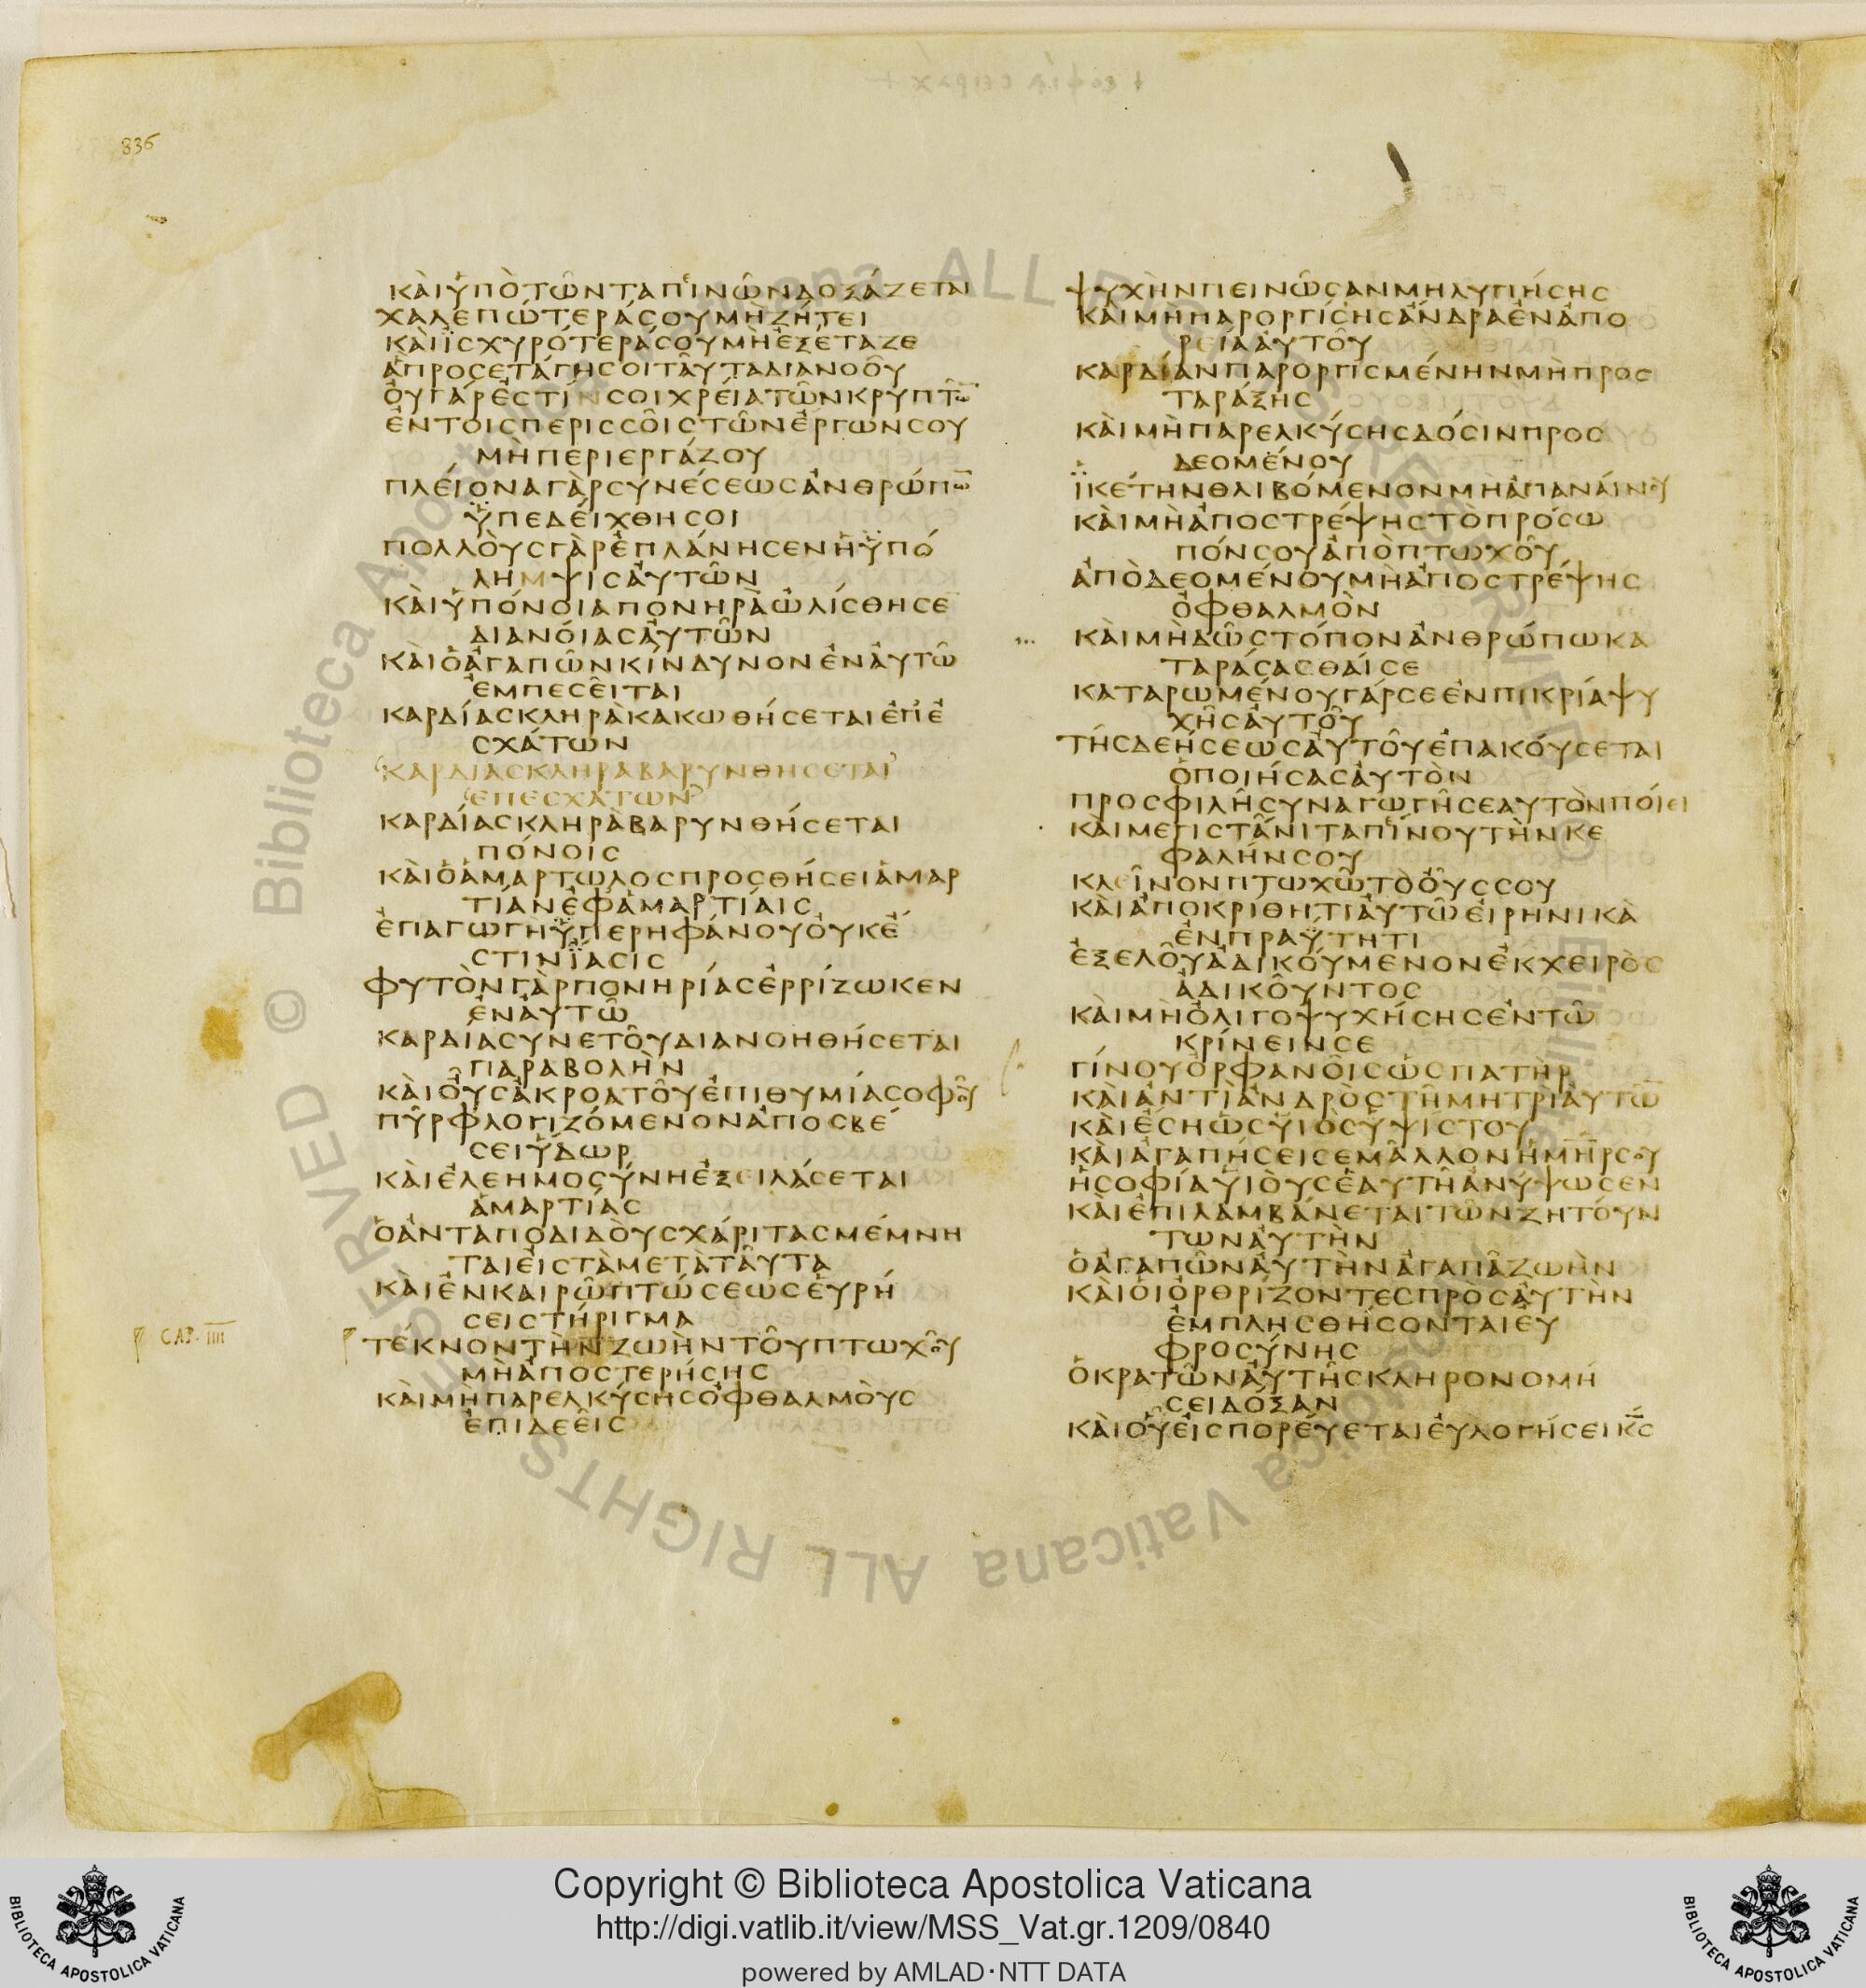 836
ΚΑΙΫΠΟΤΩΝΤΑΠΙΝΩΝΔΟΞΑΖΕΤΑΙ
ΧΑΛΕΠΩΤΕΡΑΣΟΥΜΗΖΗΤΕΙ
ΚΑΙΪΣΧΥΡΟΤΕΡΑΣΟΥΜΗΕΞΕΤΑΖΕ
ΑΠΡΟΣΕΤΑΓΗΣΟΙΤΑΥΤΑΔΙΑΝΟΟΥ
ΟΥΓΑΡΕΣΤΙΝΣΟΙΧΡΕΙΑΤΩΝΚΡΥΠΤΩ̅
ΕΝΤΟΙΣΠΕΡΙΣΣΟΙΣΤΩΝΕΡΓΩΝΣΟΥ
ΜΗΠΕΡΙΕΡΓΑΖΟΥ
ΠΛΕΙΟΝΑΓΑΡΣΥΝΕΣΕΩΣΑΝΘΡΩΠΩ̅
ΫΠΕΔΕΙΧΘΗΣΟΙ
ΠΟΛΛΟΥΣΓΑΡΕΠΛΑΝΗΣΕΝΗΫΠΟ
ΛΗΜΨΙΣΑΥΤΩΝ
ΚΑΙΥΠΟΝΟΙΑΠΟΝΗΡΑΩΛΙΣΘΗΣΕ
ΔΙΑΝΟΙΑΣΑΥΤΩΝ
ΚΑΙΟΑΓΑΠΩΝΚΙΝΔΥΝΟΝΕΝΑΥΤΩ
ΕΜΠΕΣΕΙΤΑΙ
ΚΑΡΔΙΑΣΚΛΗΡΑΚΑΚΩΘΗΣΕΤΑΙΕΠΕ
ΣΧΑΤΩΝ
ΚΑΡΔΙΑΣΚΛΗΡΑΒΑΡΥΝΘΗΣΕΤΑΙ
ΕΠΕΣΧΑΤΩΝ
ΚΑΡΔΙΑΣΚΛΗΡΑΒΑΡΥΝΘΗΣΕΤΑΙ
ΠΟΝΟΙΣ
ΚΑΙΟΑΜΑΡΤΩΛΟΣΠΡΟΣΘΗΣΕΙΑΜΑΡ
ΤΙΑΝΕΦΑΜΑΡΤΙΑΙΣ
ΕΠΑΓΩΓΗΫΠΕΡΗΦΑΝΟΥΟΥΚΕ
ΣΤΙΝΪΑΣΙΣ
ΦΥΤΟΝΓΑΡΠΟΝΗΡΙΑΣΕΡΡΙΖΩΚΕΝ
ΕΝΑΥΤΩ
ΚΑΡΔΙΑΣΥΝΕΤΟΥΔΙΑΝΟΗΘΗΣΕΤΑΙ
ΠΑΡΑΒΟΛΗΝ
ΚΑΙΟΥΣΑΚΡΟΑΤΟΥΕΠΙΘΥΜΙΑΣΟΦΟΥ
ΠΥΡΦΛΟΓΙΖΟΜΕΝΟΝΑΠΟΣΒΕ
ΣΕΙΥΔΩΡ
ΚΑΙΕΛΕΗΜΟΣΥΝΗΕΞΕΙΛΑΣΕΤΑΙ
ΑΜΑΡΤΙΑΣ
ΟΑΝΤΑΠΟΔΙΔΟΥΣΧΑΡΙΤΑΣΜΕΜΝΗ
ΤΑΙΕΙΣΤΑΜΕΤΑΤΑΥΤΑ
ΚΑΙΕΝΚΑΙΡΩΠΤΩΣΕΩΣΕΥΡΗ
ΣΕΙΣΤΗΡΙΓΜΑ
CAP. IIII
ΤΕΚΝΟΝΤΗΝΖΩΗΝΤΟΥΠΤΩΧΟΥ
ΜΗΑΠΟΣΤΕΡΗΣΗΣ
ΚΑΙΜΗΠΑΡΕΛΚΥΣΗΣΟΦΘΑΛΜΟΥΣ
ΕΠΙΔΕΕΙΣ
ΨΥΧΗΝΠΕΙΝΩΣΑΝΜΗΛΥΠΗΣΗΣ
ΚΑΙΜΗΠΑΡΟΡΓΙΣΗΣΑΝΔΡΑΕΝΑΠΟ
ΡΕΙΑΑΥΤΟΥ
ΚΑΡΔΙΑΝΠΑΡΟΡΓΙΣΜΕΝΗΝΜΗΠΡΟΣ
ΤΑΡΑΞΗΣ
ΚΑΙΜΗΠΑΡΕΛΚΥΣΗΣΔΟΣΙΝΠΡΟΣ
ΔΕΟΜΕΝΟΥ
ΪΚΕΤΗΝΘΛΙΒΟΜΕΝΟΝΜΗΑΠΑΝΑΙΝΟΥ
ΚΑΙΜΗΑΠΟΣΤΡΕΨΗΣΤΟΠΡΟΣΩ
ΠΟΝΣΟΥΑΠΟΠΤΩΧΟΥ
ΑΠΟΔΕΟΜΕΝΟΥΜΗΑΠΟΣΤΡΕΨΗΣ
ΟΦΘΑΛΜΟΝ
ΚΑΙΜΗΔΩΣΤΟΠΟΝΑΝΘΡΩΠΩΚΑ
ΤΑΡΑΣΑΣΘΑΙΣΕ
ΚΑΤΑΡΩΜΕΝΟΥΓΑΡΣΕΕΝΠΙΚΡΙΑΨΥ
ΧΗΣΑΥΤΟΥ
ΤΗΣΔΕΗΣΕΩΣΑΥΤΟΥΕΠΑΚΟΥΣΕΤΑΙ
ΟΠΟΙΗΣΑΣΑΥΤΟΝ
ΠΡΟΣΦΙΛΗΣΥΝΑΓΩΓΗΣΕΑΥΤΟΝΠΟΙΕΙ
ΚΑΙΜΕΓΙΣΤΑΝΙΤΑΠΙΝΟΥΤΗΝΚΕ
ΦΑΛΗΝΣΟΥ
ΚΛΕΙΝΟΝΠΤΩΧΩΤΟΟΥΣΣΟΥ
ΚΑΙΑΠΟΚΡΙΘΗΤΙΑΥΤΩΕΙΡΗΝΙΚΑ
ΕΝΠΡΑΫΤΗΤΙ
ΕΞΕΛΟΥΑΔΙΚΟΥΜΕΝΟΝΕΚΧΕΙΡΟΣ
ΑΔΙΚΟΥΝΤΟΣ
ΚΑΙΜΗΟΛΙΓΟΨΥΧΗΣΗΣΕΝΤΩ
ΚΡΙΝΕΙΝΣΕ
ΓΙΝΟΥΟΡΦΑΝΟΙΣΩΣΠΑΤΗΡ
ΚΑΙΑΝΤΙΑΝΔΡΟΣΤΗΜΗΤΡΙΑΥΤΩ̅
ΚΑΙΕΣΗΩΣΫΙΟΣΥΨΙΣΤΟΥ
ΚΑΙΑΓΑΠΗΣΕΙΣΕΜΑΛΛΟΝΗΜ̅Η̅Ρ̅ΣΟΥ
ΗΣΟΦΙΑΥΙΟΥΣΕΑΥΤΗΑΝΥΨΩΣΕΝ
ΚΑΙΕΠΙΛΑΜΒΑΝΕΤΑΙΤΩΝΖΗΤΟΥΝ
ΤΩΝΑΥΤΗΝ
ΟΑΓΑΠΩΝΑΥΤΗΝΑΓΑΠΑΖΩΗΝ
ΚΑΙΟΙΟΡΘΡΙΖΟΝΤΕΣΠΡΟΣΑΥΤΗΝ
ΕΜΠΛΗΣΘΗΣΟΝΤΑΙΕΥ
ΦΡΟΣΥΝΗΣ
ΟΚΡΑΤΩΝΑΥΤΗΣΚΛΗΡΟΝΟΜΗ
ΣΕΙΔΟΞΑΝ
ΚΑΙΟΥΕΙΣΠΟΡΕΥΕΤΑΙΕΥΛΟΓΗΣΕΙΚ̅Σ̅
© Biblioteca Apostolica Vaticana ALL RIGHTS RESERVED
Copyright © Biblioteca Apostolica Vaticana
http://digi.vatlib.it/view/MSS_Vat.gr.1209/0840
powered by AMLAD·NTT DATA
BIBLIOTECA APOSTOLICA VATICANA
BIBLIOTECA APOSTOLICA VATICANA